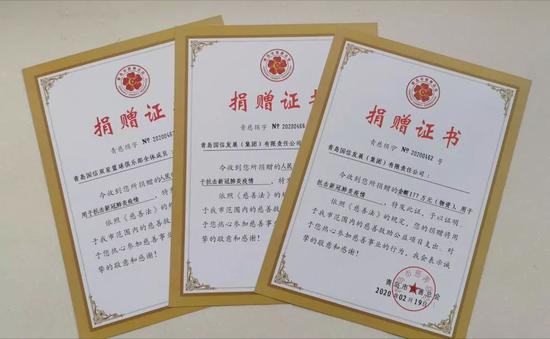 捐赠证
青慈捐字 № 20200467
青岛国信双星篮球俱乐部全体成员：
今收到您所捐赠的人民
用于抗击新冠肺炎疫情
依照《慈善法》的
于我市范围内的慈善救
于您热心参加慈善事业的
挚的敬意和感谢！
捐赠证书
青慈捐字 № 20200466
青岛国信发展（集团）有限责任公司
今收到您所捐赠的人民
用于抗击新冠肺炎疫情
依照《慈善法》
于我市范围内的慈善
于您热心参加慈善事
挚的敬意和感谢！
捐赠证书
青慈捐字 № 20200462 号
青岛国信发展（集团）有限责任公司：
今收到您所捐赠的金额177万元（物资），用于
抗击新冠肺炎疫情，特发此证，予以证明。
依照《慈善法》的规定，您的捐赠将用
于我市范围内的慈善救助公益项目支出。对
于您热心参加慈善事业的行为，我会表示诚
挚的敬意和感谢！
青岛市慈善总会
2020年02月19日